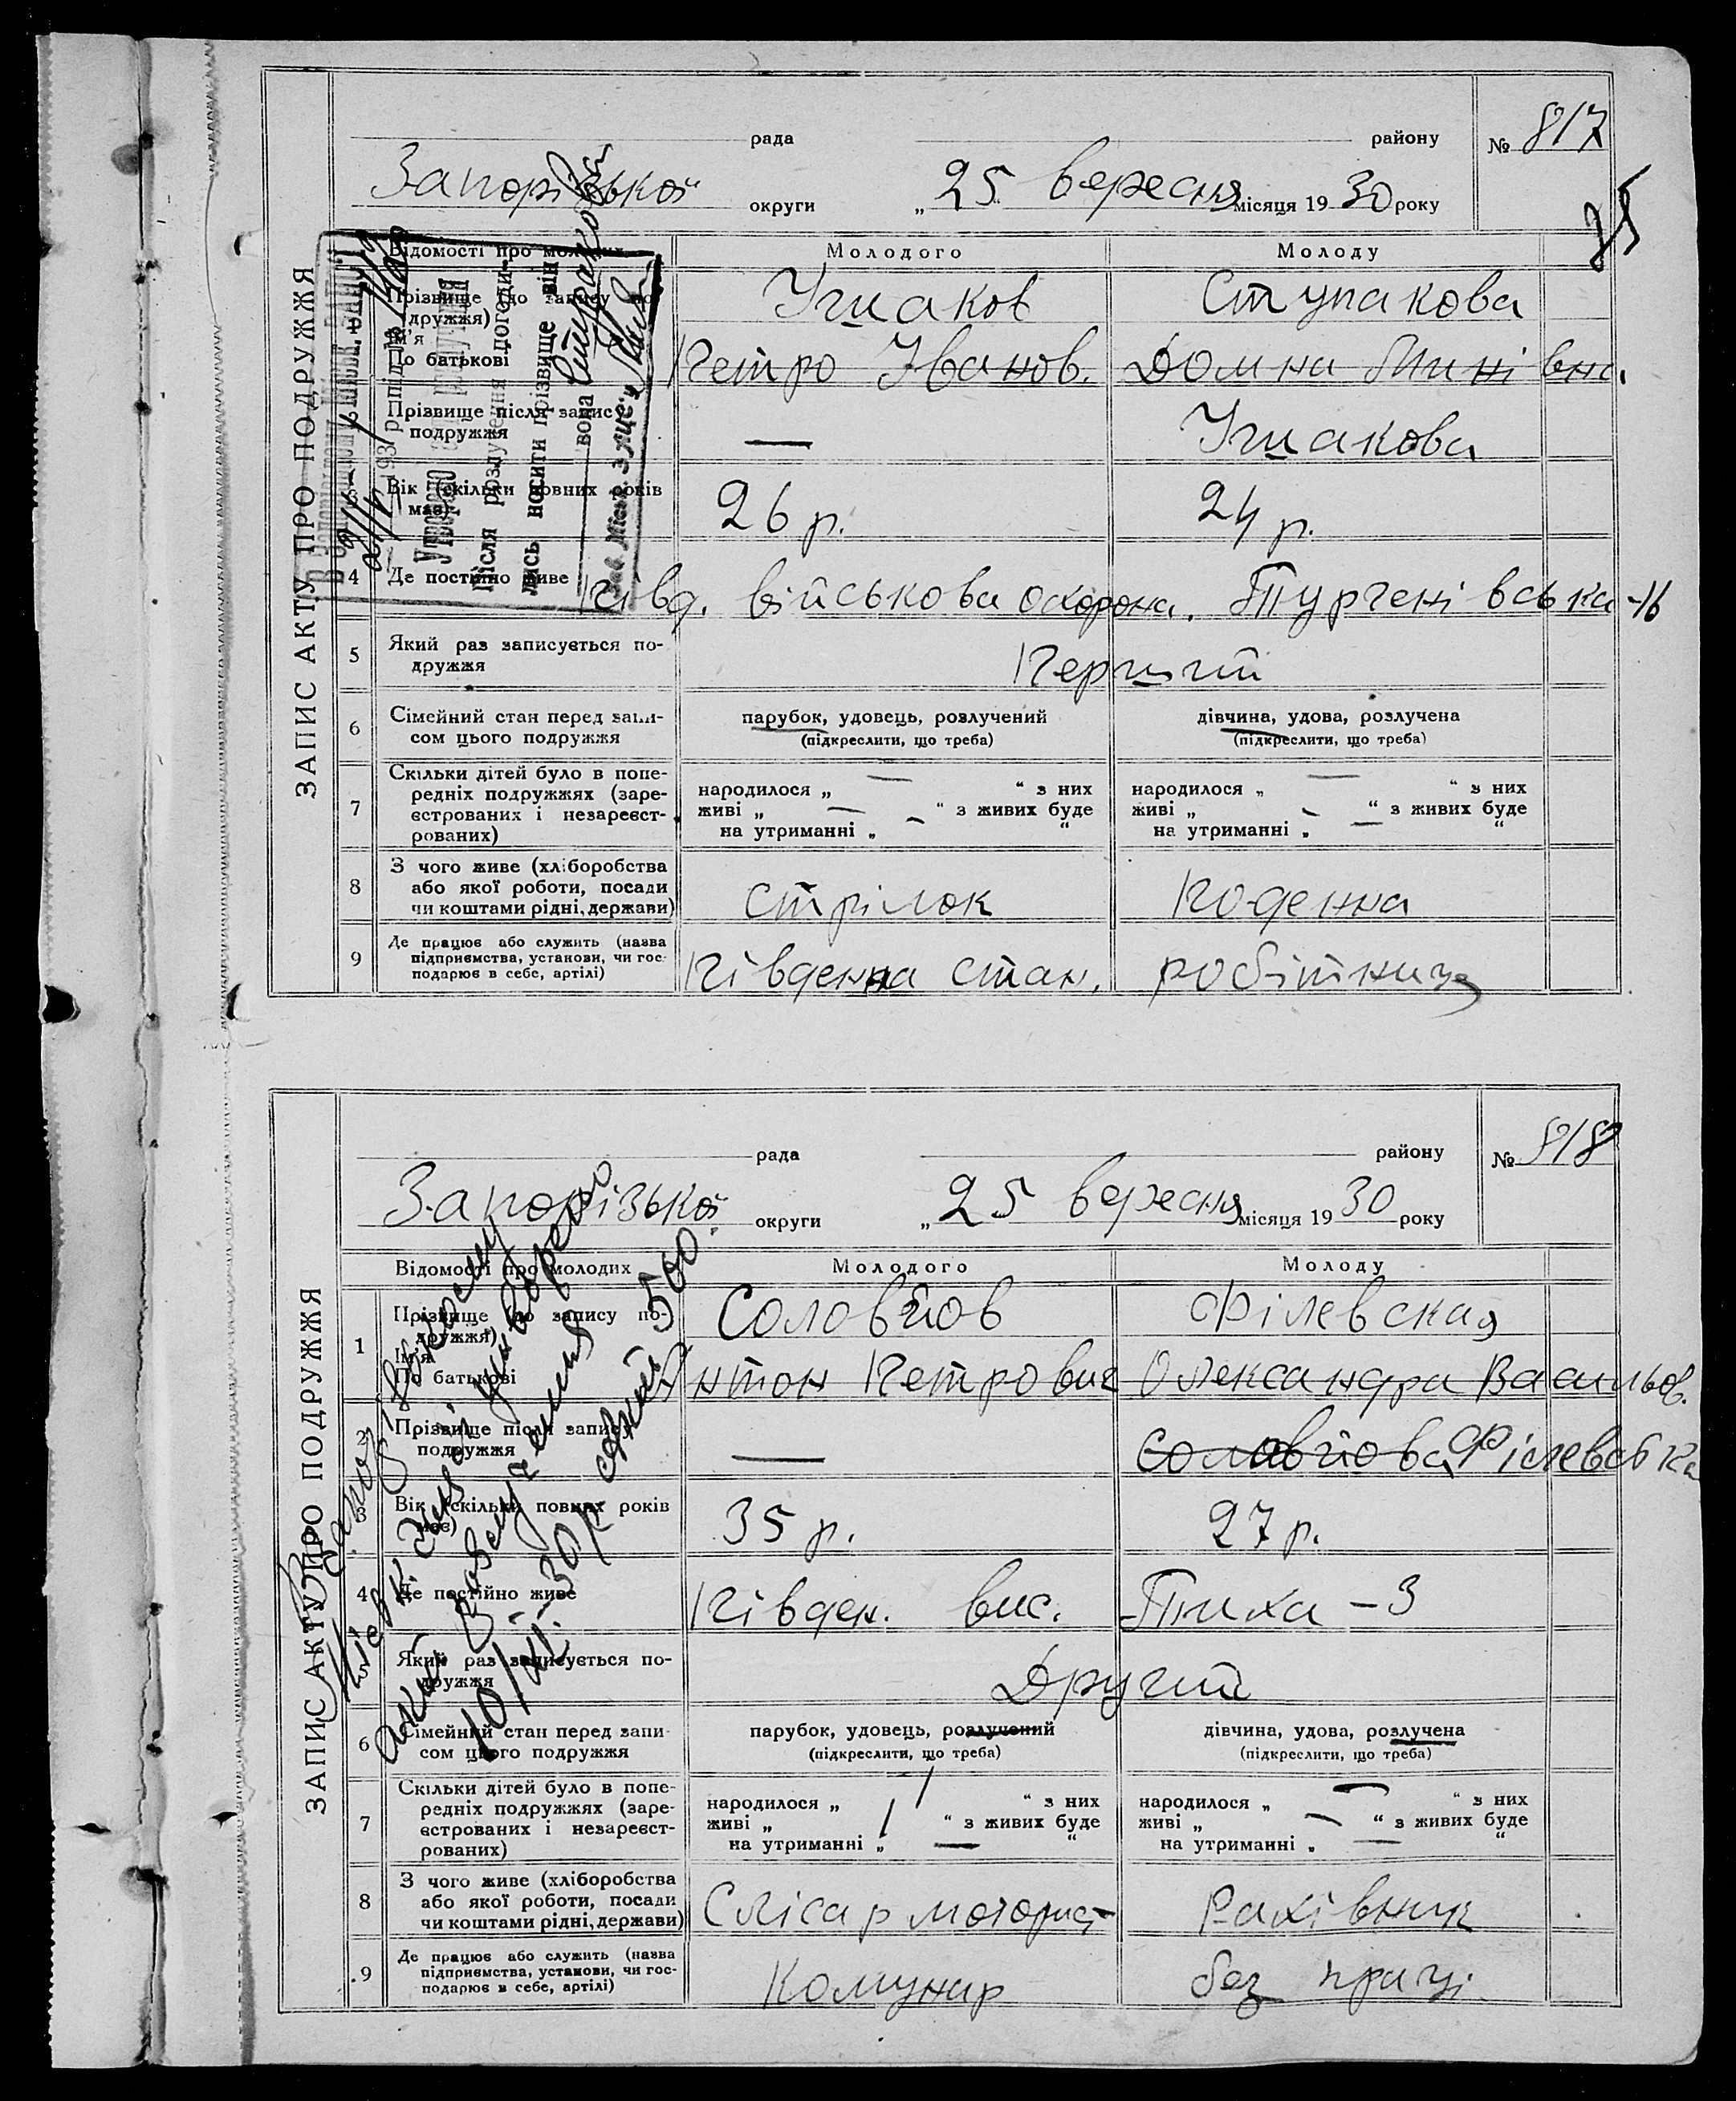 ЗАПИС АКТУ ПРО ПОДРУЖЖЯ
рада району № 817
Запорізької округи „ 25 вересня місяця 19 30 року
Відомості про молодих Молодого Молоду
Прізвище (до запису по- Ушаков Ступакова
дружжя)
Ім'я
По батькові Петро Іванов. Домна
Прізвище після запису — Ушакова
подружжя
Вік (скільки повних років 26 р. 24 р.
має)
4 Де постійно живе Півд. військова охорона. Тургенівська -16
5 Який раз записується по- Перший
дружжя
6 Сімейний стан перед запи- парубок, удовець, розлучений дівчина, удова, розлучена
сом цього подружжя (підкреслити, що треба) (підкреслити, що треба)
7 Скільки дітей було в попе-
редніх подружжях (заре- народилося „ — “ з них народилося „ — “ з них
єстрованих і незареєст- живі „ — “ з живих буде живі „ — “ з живих буде
рованих) на утриманні „ — “ на утриманні „ — “
8 З чого живе (хліборобства
або якої роботи, посади стрілок поденна
чи коштами рідні, держави)
9 Де працює або служить (назва
підприємства, установи, чи гос- Південна стан. робітниця
подарює в себе, артілі)
Утворено
Після розлучення догоди-
лись носити прізвище він
вона
ЗАПИС АКТУ ПРО ПОДРУЖЖЯ
рада району № 818
Запорізької округи „ 25 вересня місяця 19 30 року
Відомості про молодих Молодого Молоду
1 Прізвище (до запису по- Соловйов Філевская
дружжя)
Ім'я
По батькові Антон Петрович Олександра Васильов.
2 Прізвище після запису — Соловйова Філевська
подружжя
3 Вік (скільки повних років 35 р. 27 р.
має)
4 Де постійно живе Півден. вис. Тиха – 3
5 Який раз записується по- Другий
дружжя
6 Сімейний стан перед запи- парубок, удовець, розлучений дівчина, удова, розлучена
сом цього подружжя (підкреслити, що треба) (підкреслити, що треба)
7 Скільки дітей було в попе-
редніх подружжях (заре- народилося „ / “ з них народилося „ — “ з них
єстрованих і незареєст- живі „ / “ з живих буде живі „ — “ з живих буде
рованих) на утриманні „ — “ на утриманні „ — “
8 З чого живе (хліборобства
або якої роботи, посади Слісар моторист Рахівник
чи коштами рідні, держави)
9 Де працює або служить (назва
підприємства, установи, чи гос- Комунар без праці.
подарює в себе, артілі)
утворено
акт
10/XI-30 р.
500.